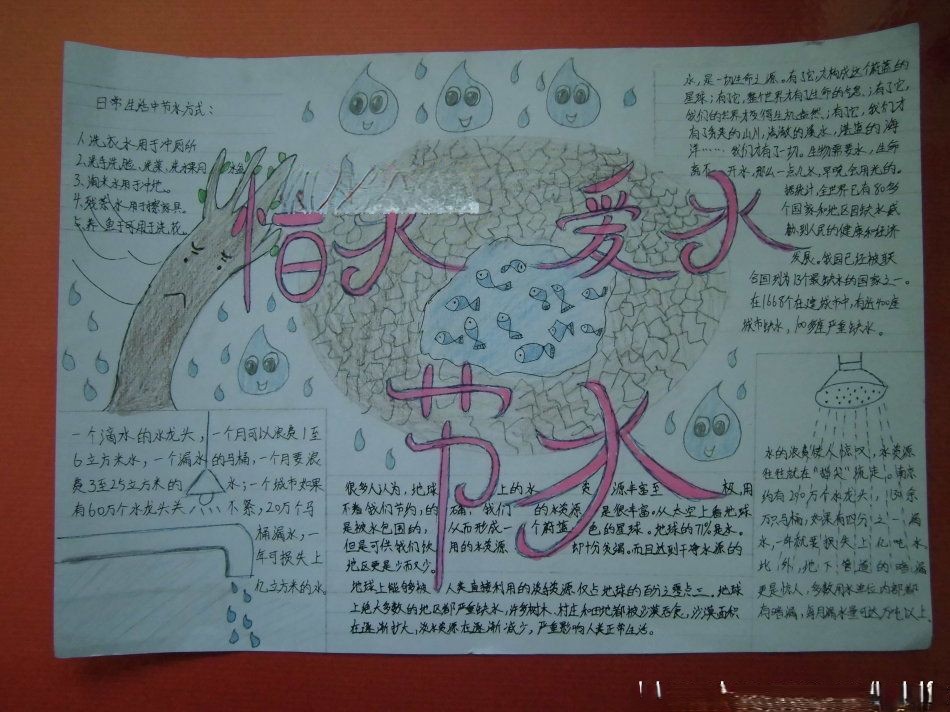 惜水 爱水
节水
日常生活中节水方式：
1.洗衣水用于冲厕所
2.洗手洗脸、洗菜、洗水果用 水盆
3、淘米水用于冲地。
4.残茶水用于擦家具。
5.养鱼水可用于浇花。
水，是一切生命之源。有了它，才构成这个蔚蓝的
星球；有了它，整个世界才有了生命的气息；有了它，
我们的世界才变得生机盎然；有了它，我们才
有了秀美的山川，清澈的溪水，湛蓝的海
洋……我们才有了一切。生物需要水，生命
离不开水，那么一点儿水，早晚会用光的。
据统计，全世界已有80多
个国家和地区因缺水威
胁到人民的健康和经济
发展。我国已经被联
合国列为13个最缺水的国家之一。
在1668个在建城市中，有近400座
城市缺水，100多座严重缺水。
一个滴水的水龙头，一个月可以浪费1至
6立方米水，一个漏水的马桶，一个月要浪
费3至25立方米的水；一个城市如果
有60万个水龙头关不紧，20万个马
桶漏水，一
年可损失上
亿立方米的水。
很多人认为，地球上的水资源丰富至极，用
不着我们节约，的确，我们的水资源是很丰富。从太空上看地球
是被水包围的，从而形成一个蔚蓝色的星球。地球的71%是水。
但是可供我们饮用的水资源却十分匮乏。而且达到干净水源的
地区更是少而又少。
地球上能够被人类直接利用的淡水资源仅占地球的百分之零点三。地球
上绝大多数的地区都严重缺水，许多树木、村庄和田地都被沙漠吞食，沙漠面积
在逐渐扩大，淡水资源在逐渐减少，严重影响人类正常生活。
水的浪费使人惊叹，水资源
往往就在“指尖”流走。南京
约有290万个水龙头，1150余
万只马桶，如果有四分之一漏
水，一年就是损失上亿吨水。
此外，地下管道的暗漏
更是惊人，多数用水单位内部都
有暗漏，每月漏水量可达万吨以上